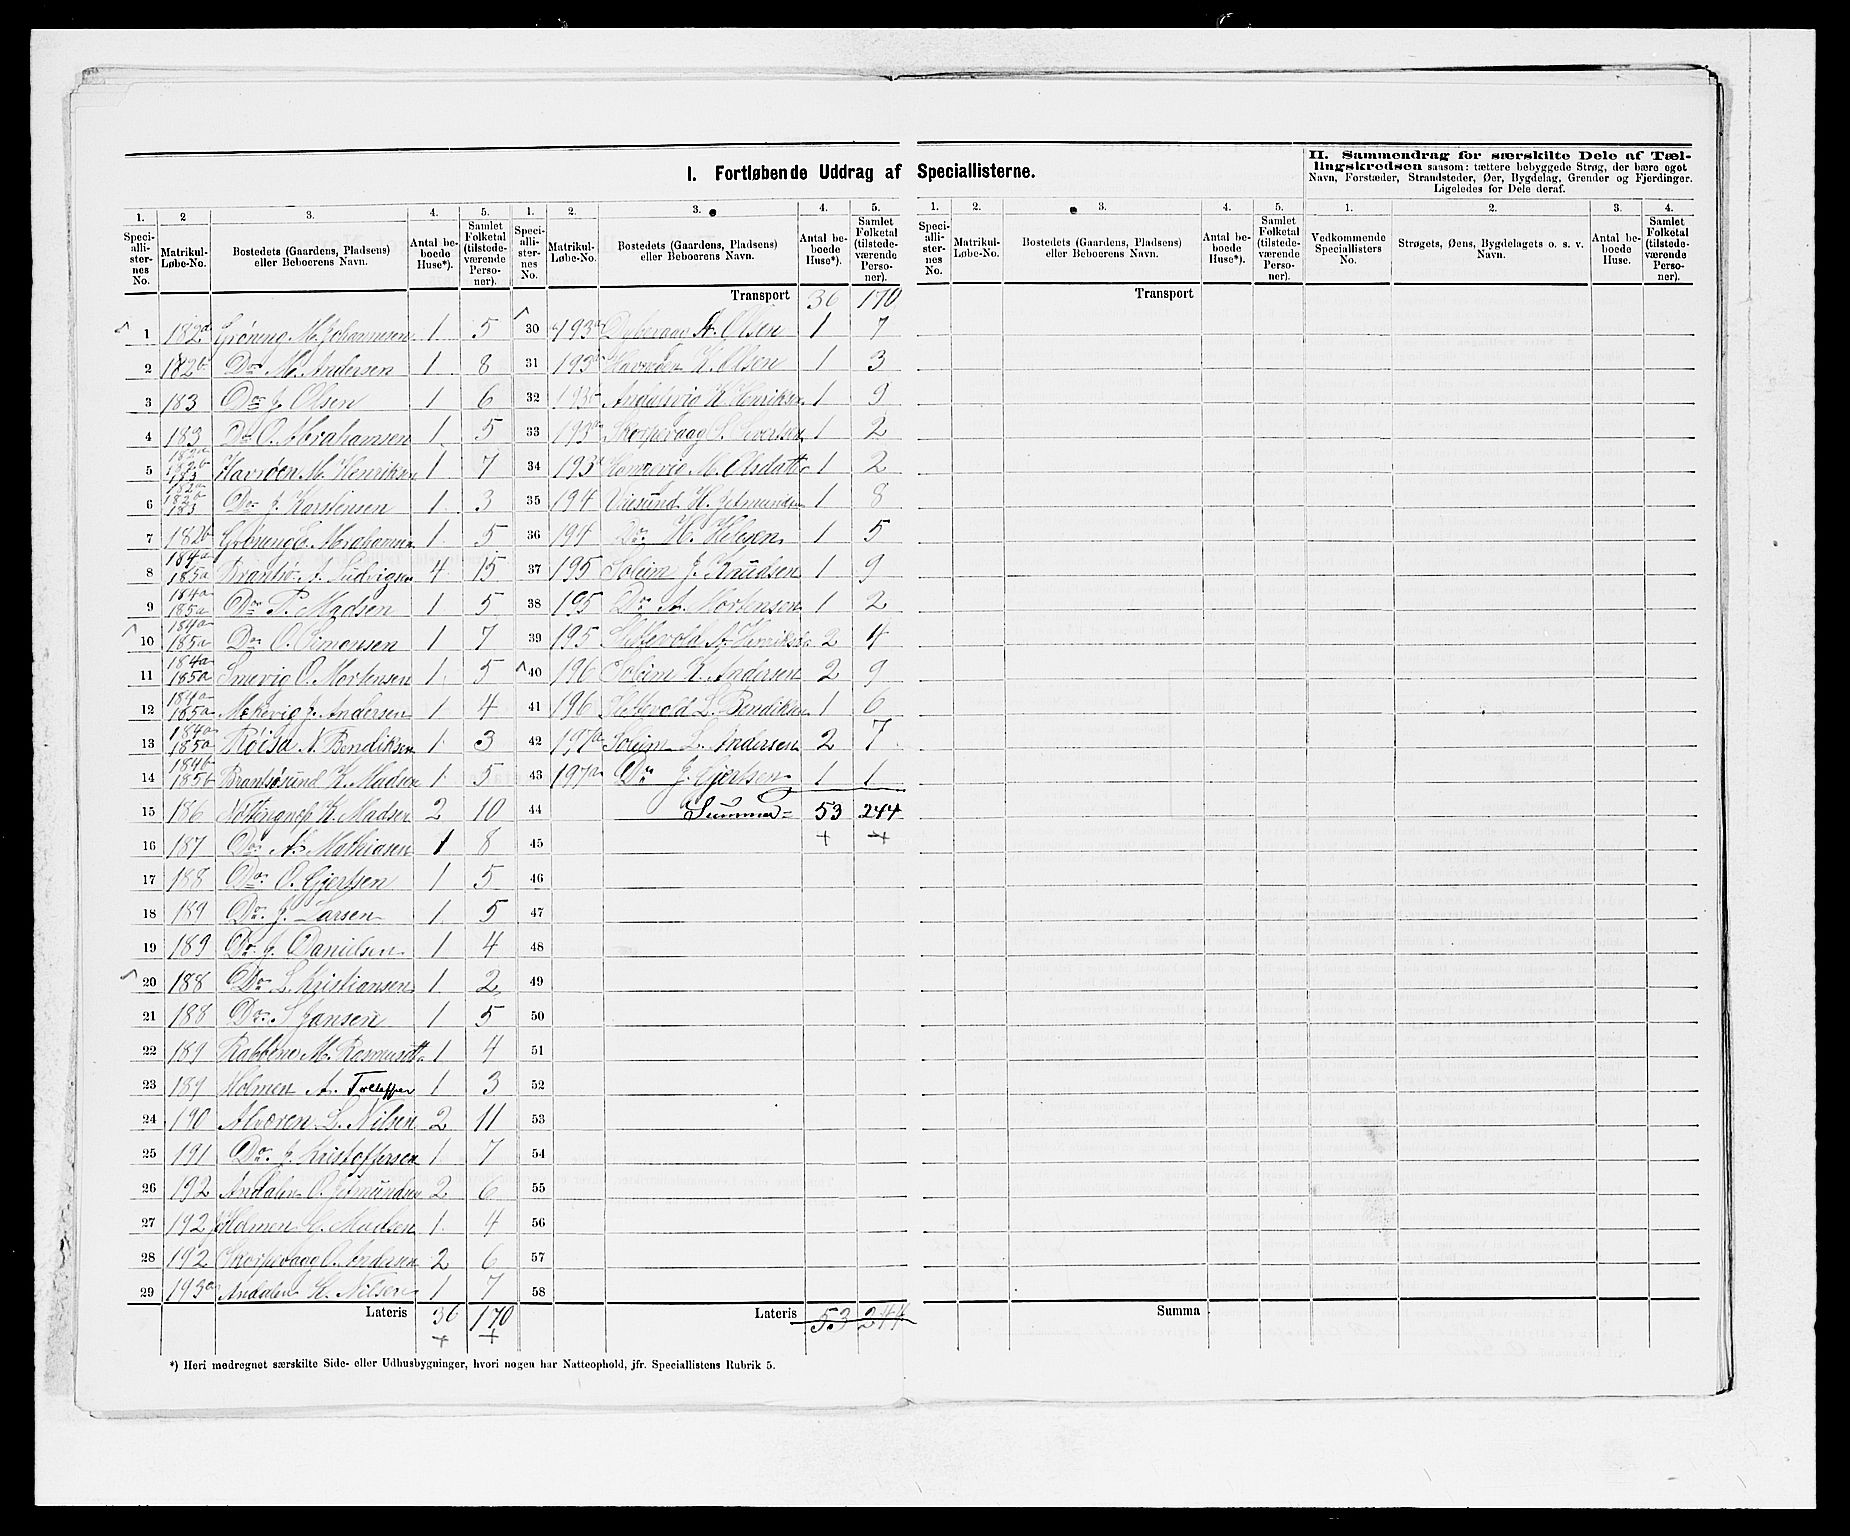 I. Fortløbende Uddrag af Speciallisterne.
II. Sammendrag for særskilte Dele af Tællingskredsen saasom: tættere bebyggede Strøg, der bære eget
Navn, Forstæder, Strandsteder, Øer, Bygdelag, Grender og Fjerdinger.
Ligeledes for Dele deraf.
1. 2 3. 4. 5. 1. 2. 3. 4. 5. 1. 2. 3. 4. 5. 1. 2. 3. 4.
Speciallisternes No. Matrikul-Løbe-No. Bostedets (Gaardens, Pladsens) eller Beboerens Navn. Antal beboede Huse*). Samlet Folketal (tilstedeværende Personer).
Speciallisternes No. Matrikul-Løbe-No. Bostedets (Gaardens, Pladsens) eller Beboerens Navn. Antal beboede Huse*). Samlet Folketal (tilstedeværende Personer).
Speciallisternes No. Matrikul-Løbe-No. Bostedets (Gaardens, Pladsens) eller Beboerens Navn. Antal beboede Huse*). Samlet Folketal (tilstedeværende Personer).
Vedkommende Speciallisters No. Strøgets, Øens, Bygdelagets o. s. v. Navn. Antal beboede Huse. Samlet Folketal (tilstedeværende Personer).
1 182a Grøneng M. Johannesen 1 5
2 182b Do M. Andersen 1 8
3 183 Do J. Olsen 1 6
4 183 Do O. Abrahamsen 1 5
5 182a 182b 183 Havrøen M. Henriksen 1 7
6 182a 182b 183 Do J. Karstensen 1 3
7 182b Grøneng L. Abrahamsen 1 5
8 184a 185a Brantsø J. Ludvigsen 4 15
9 184a 185a Do P. Madsen 1 5
10 184a 185a Do O. Simonsen 1 7
11 184a 185a Smevig O. Mortensen 1 5
12 184a 185a Mekevig J. Andersen 1 4
13 184a 185a Røisa N. Bendiksen 1 3
14 184b 185b Brantsøsund K. Madsen 1 5
15 186 K. Madsen 2 10
16 187 Do A. Mathiasen 1 8
17 188 Do O. Gjertsen 1 5
18 189 Do J. Larsen 1 5
19 189 Do J. Danielsen 1 4
20 188 Do L. Kristiansen 1 2
21 188 Do S. Jansen 1 5
22 189 Rabbene M. Rasmusdtt 1 4
23 189 Holmen A. Tollefsen 1 3
24 190 Alværen L. Nilsen 2 11
25 191 Do J. Kristoffersen 1 7
26 192 Andalen O. Jetmundsen 2 6
27 192 Holmen H. Madsen 1 4
28 192 Skorpevaag O. Andersen 2 6
29 193a Andalen H. Nilsen 1 7
Lateris 36 170
Transport 36 170
30 193a A. Olsen 1 7
31 193 Havrøen K. Olsen 1 3
32 193 Andalsvig K. Henriksen 1 9
33 193 Skorpevaag S. Sivertsen 1 2
34 193 M. Olsdatter 1 2
35 194 Viksund H. Jetmundsen 1 8
36 194 Do H. Helesen 1 5
37 195 Soleim J. Knudsen 1 9
38 195 Do A. Mortensen 1 2
39 195 A. Henriksen 2 4
40 196 Soleim K. Andersen 2 9
41 196 L. Bendiksen 1 6
42 197a Soleim L. Andersen 2 7
43 197a Do J. Gjertsen 1 1
44 Summa = 53 244
45
46
47
48
49
50
51
52
53
54
55
56
57
58
Lateris 53 244
Transport
Summa
*) Heri medregnet særskilte Side- eller Udhusbygninger, hvori nogen har Natteophold, jfr. Speciallistens Rubrik 5.